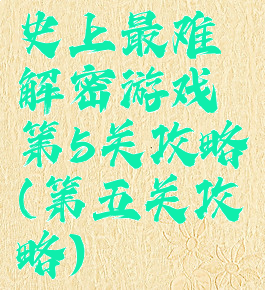 史上最难
解密游戏
第5关攻略
(第五关攻
略)